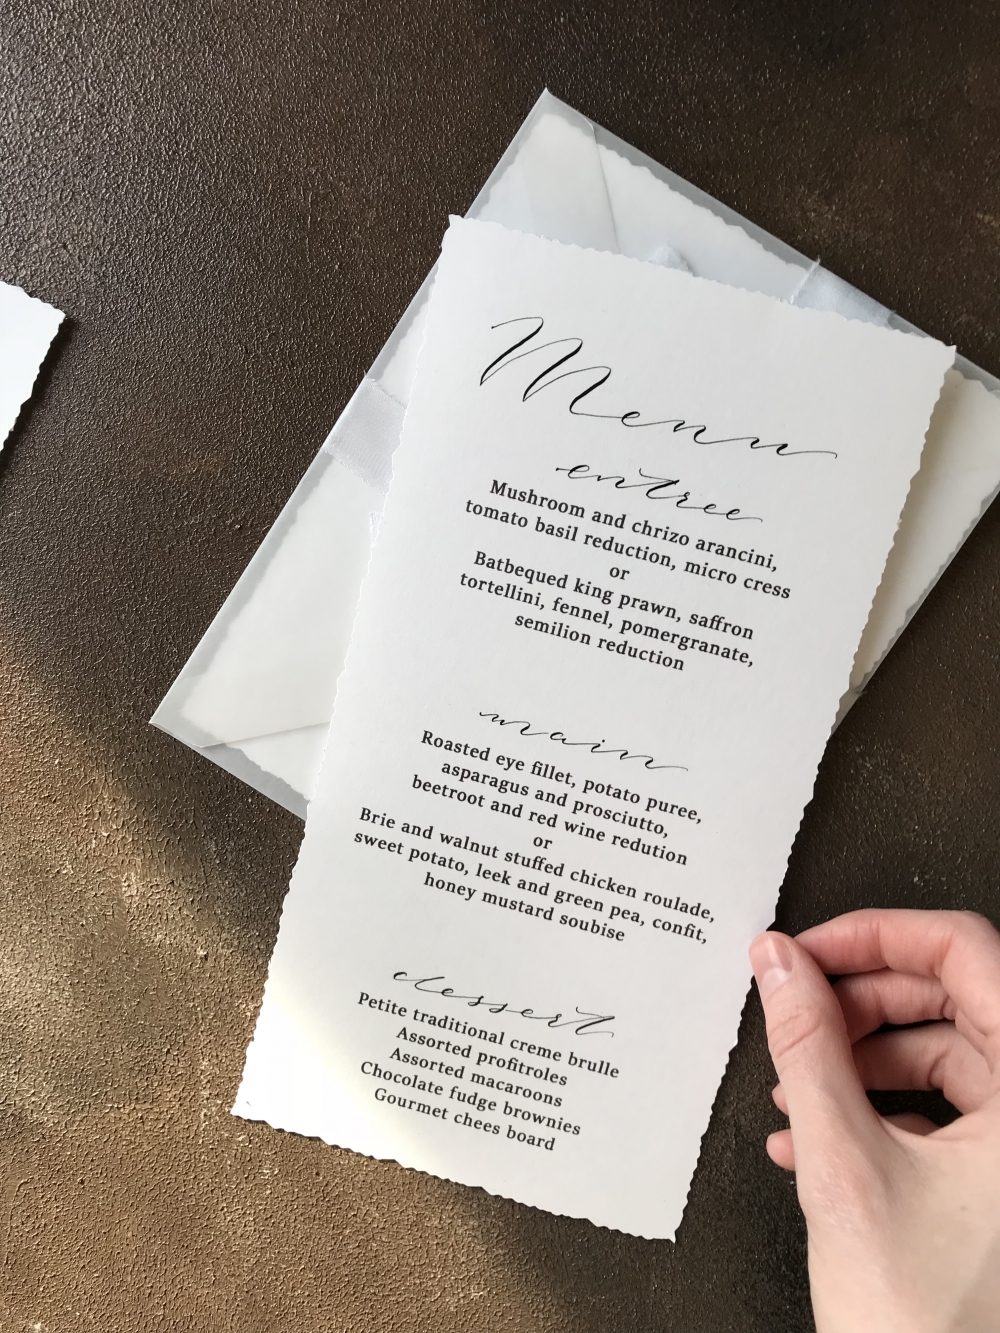 Menu
entree
Mushroom and chrizo arancini,
tomato basil reduction, micro cress
or
Batbequed king prawn, saffron
tortellini, fennel, pomergranate,
semilion reduction
main
Roasted eye fillet, potato puree,
asparagus and prosciutto,
beetroot and red wine redution
or
Brie and walnut stuffed chicken roulade,
sweet potato, leek and green pea, confit,
honey mustard soubise
dessert
Petite traditional creme brulle
Assorted profitroles
Assorted macaroons
Chocolate fudge brownies
Gourmet chees board